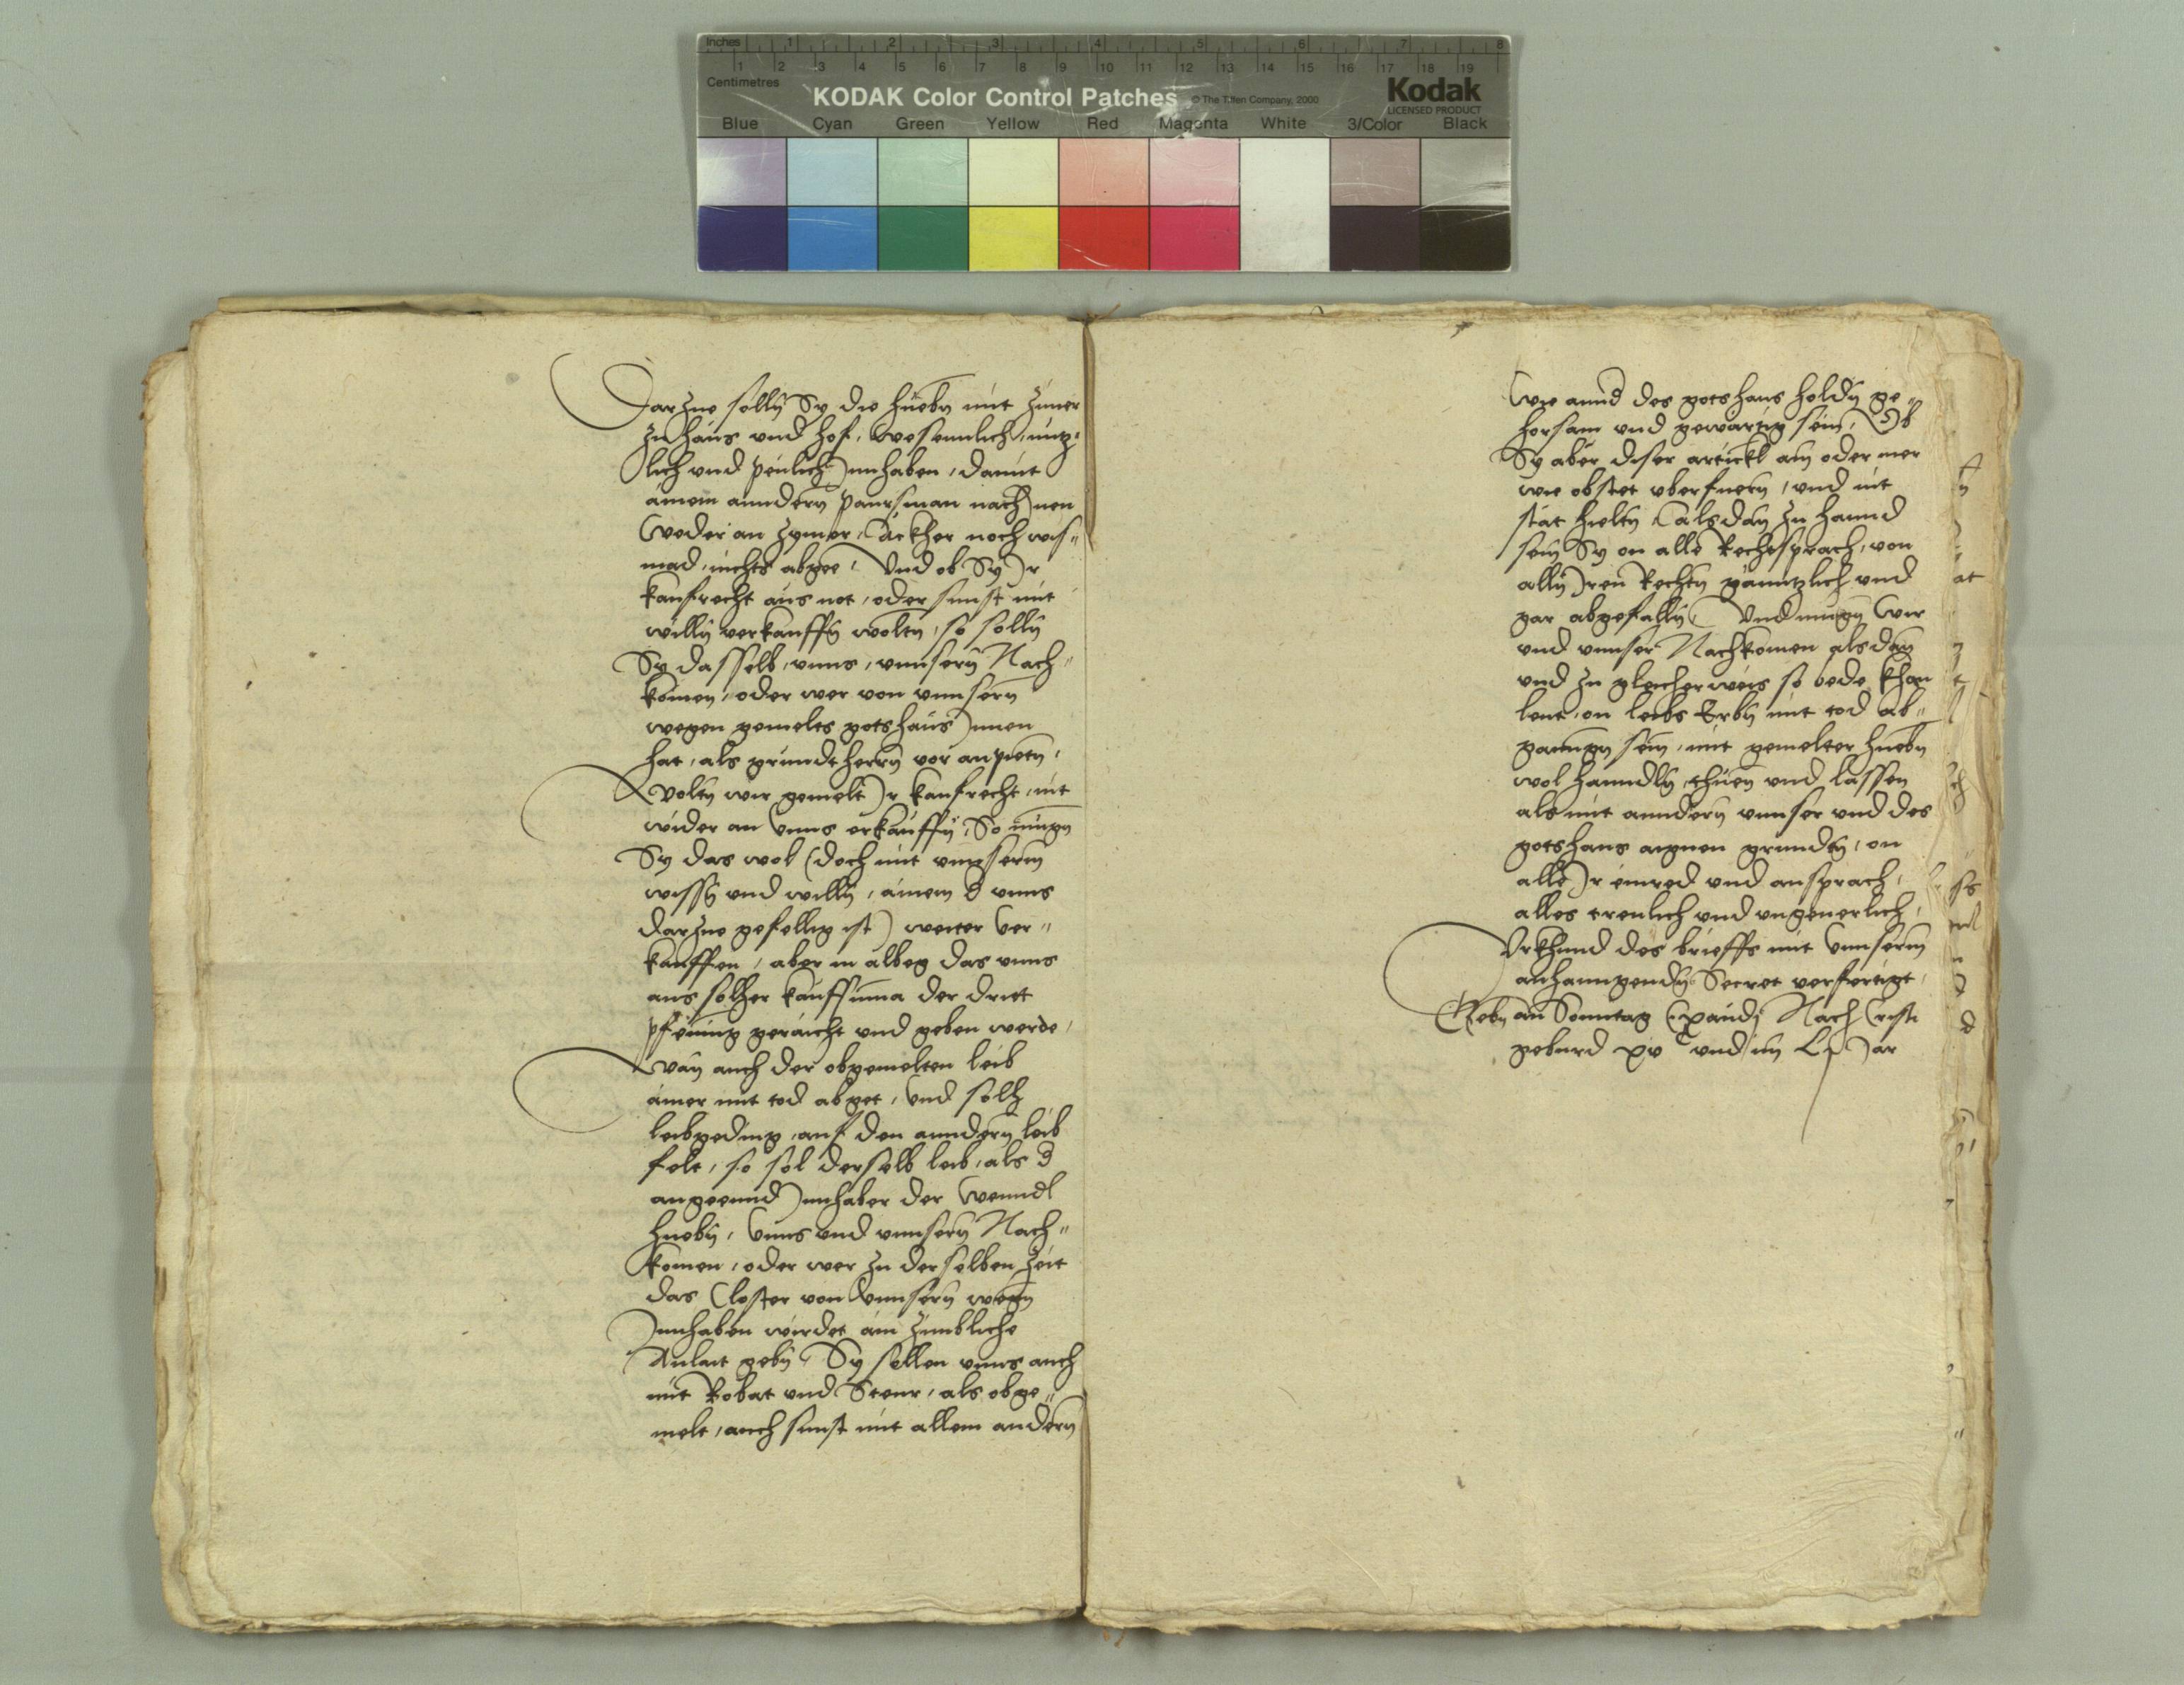 Inches 1 2 3 4 5 6 7 8
1 2 3 4 5 6 7 8 9 10 11 12 13 14 15 16 17 18 19
Centimetres
KODAK Color Control Patches © The Tiffen Company, 2000
Kodak
LICENSED PRODUCT
Blue Cyan Green Yellow Red Magenta White 3/Color Black
Darzue solln Sy die hueben mit zimer
zu haus vnd hof, wesennlich, nutz-
lich vnd peulich Innhaben, damit
ainem anndern paursman nach Inen
weder an zymer, äckher noch wis-
mad, nichts abgee, Vnd ob Sy Ir
kaufrecht aus not, oder sunst mit
willn verkauffn wolten, so solln
Sy dasselb, vnns, vnnsern Nach-
komen, oder wer von vnnsern
wegen gemelts gotshaus Innen
hat, als grundtherrn vor anpietn,
Wolten wir gemelt Ir kaufrecht, nit
wider an vnns erkauffn, So mugn
Sy das wol (doch mit vnnserm
wissn vnd willn, ainem d vnns
darzue gefellig ist) weiter ver-
kauffen, aber in albeg das vnns
aus solher kaufsuma der dritt
pfening geraicht vnd geben werde,
Wan auch der obgemelten leib
ainer mit tod abget, vnd solh
leibgeding, auf den anndern leib
felt, so sol derselb leib, als d
angeennd Innhaber der Wenndl
hueben, vnns vnd vnnsern Nach-
komen, oder wer zu derselben zeit
das Closter von vnnsern wegn
Innhaben wirdet ain zimbliche
Anlait gebn, Sy sollen vnns auch
mit Robat vnd Steur, als obge-
melt, auch sunst mit allem andern
wie annd des gotshaus holdn ge-
horsam vnd gewartig sein, Ob
Sy aber diser artickl ain oder mer
wie obstet vberfuern, vnd nit
stat hielten, alsdan zu hannd
sein Sy on alle Rechtsprach, von
alln Iren Rechten gänntzlich vnd
gar abgefalln, Vnd mugn wir
vnd vnnser Nachkomen alsdan
vnd zu gleicher weis so bede khan
leut, on leibs Erbn mit tod ab-
ganngn sein, mit gemelter huebn
wol hanndln, thuen vnd lassen
als mit anndern vnnser vnd des
gotshaus aignen grundtn, on
alle Ir einred vnd ansprach,
alles treulich vnd vngeuerlich,
Vrkhund des brieffs mit vnnserm
anhanngenden Secret verfertigt,
Gebn an Sonntag Exaudi Nach Cristi
geburd xv C vnd im Ar